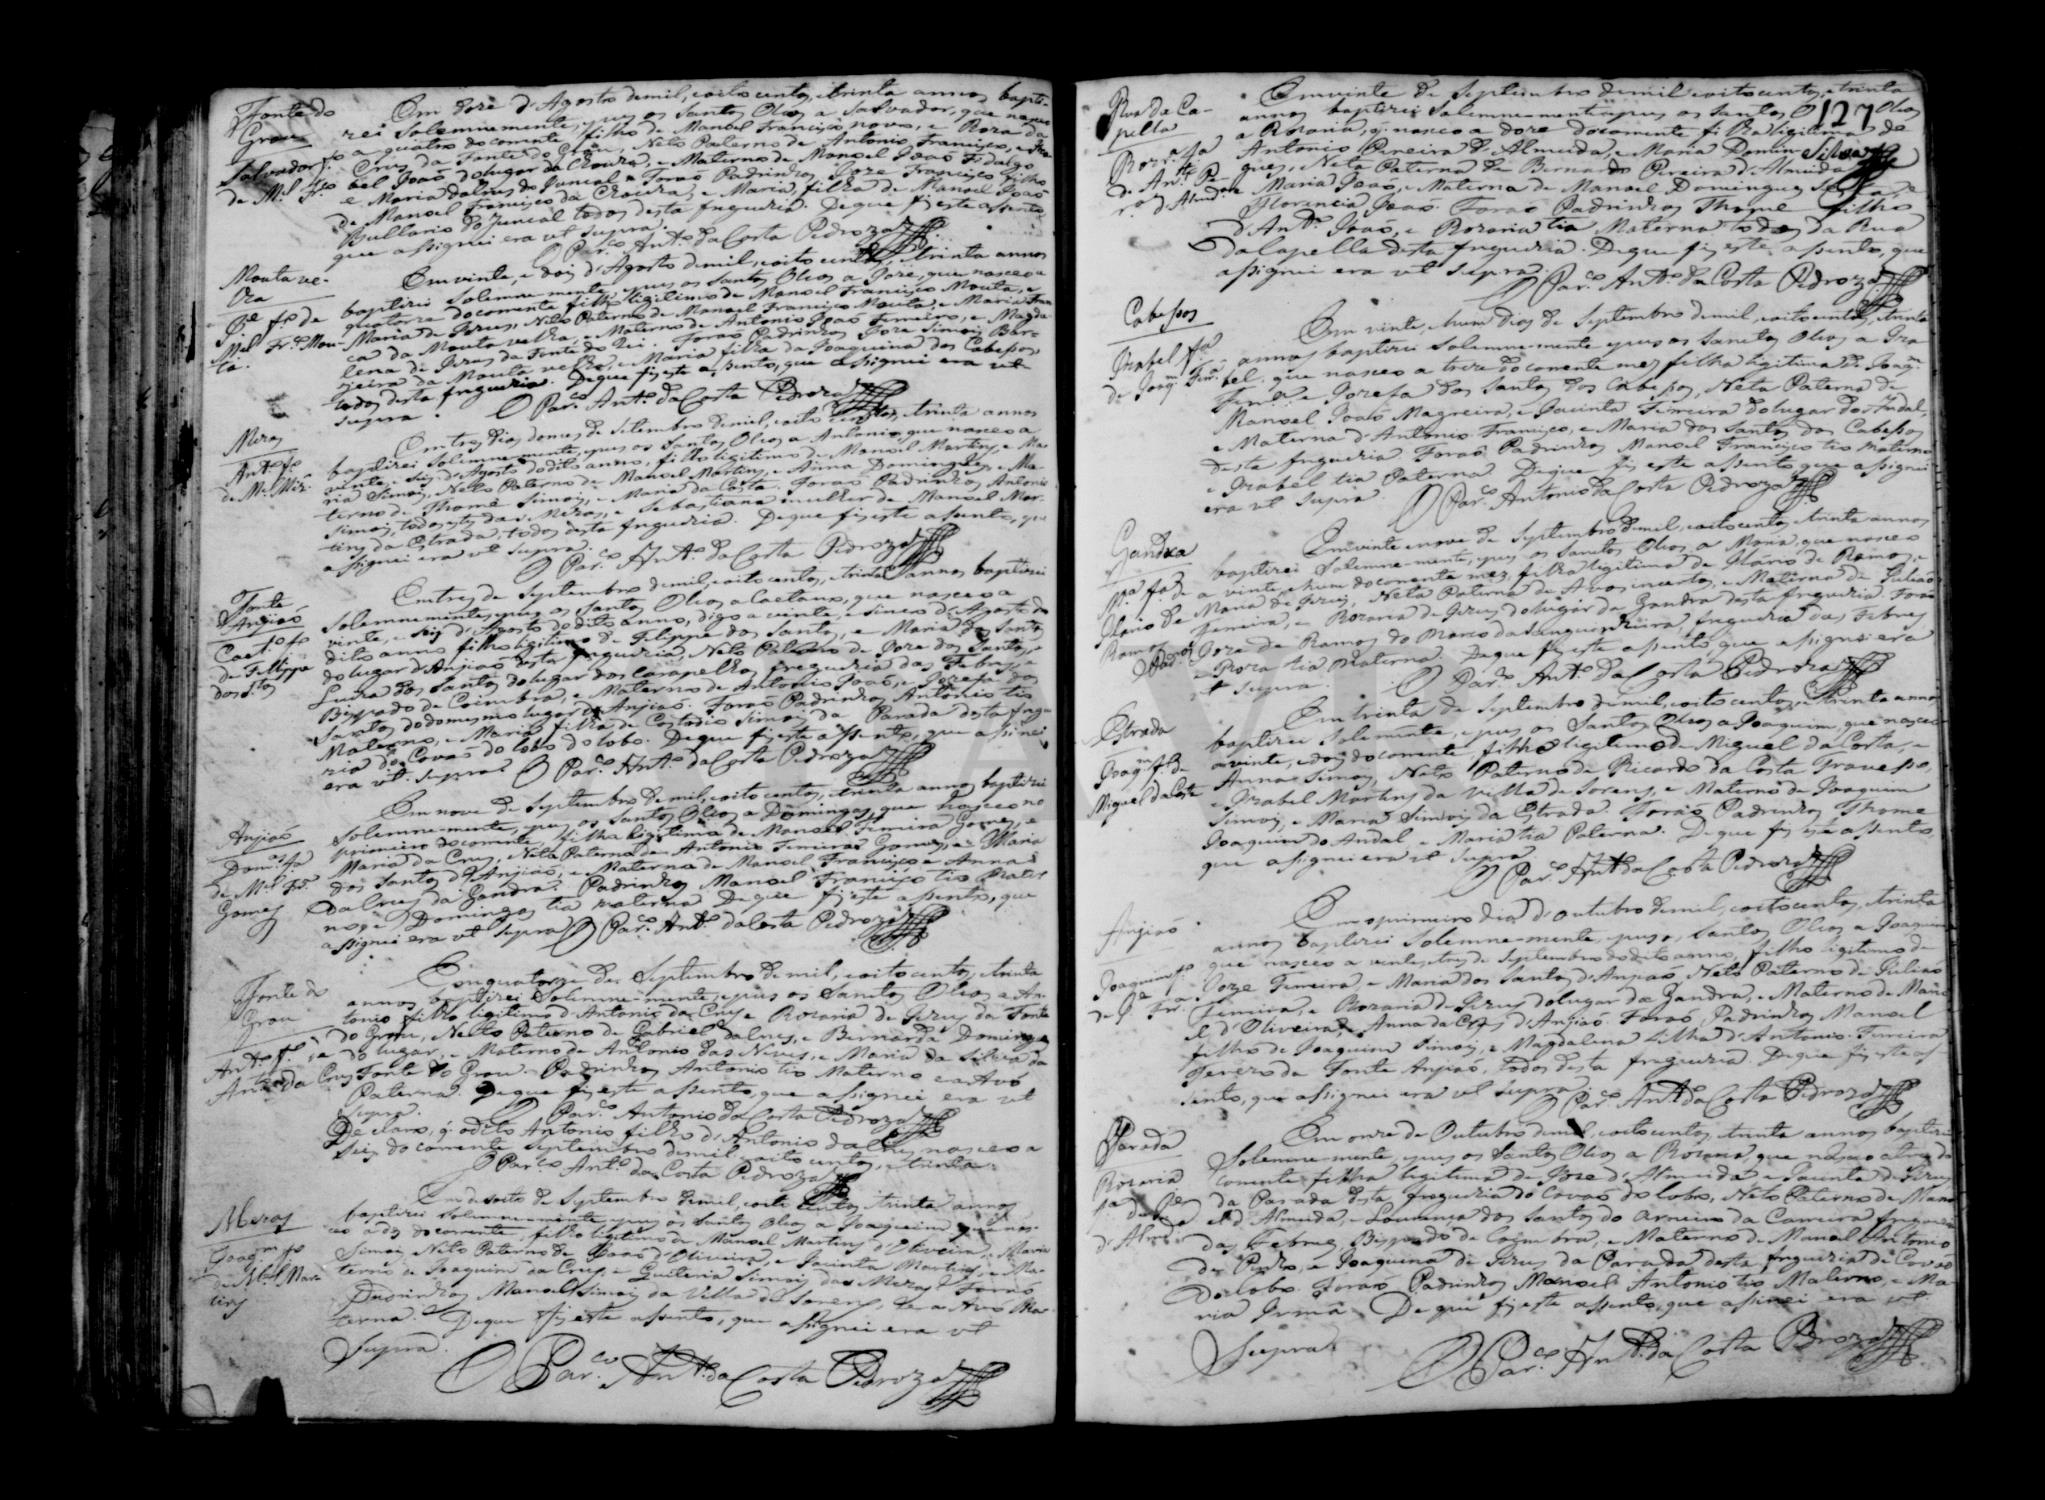 Fonte do
Grou
Salvador fº
de Mel Frco
Em doze d'Agosto de mil, e oito centos, e trinta annos bapti-
zei Solemne-mente, e pus os Santos Oleos a Salvador, que nasceo
a quatro do corrente, filho de Manoel Francisco novo, e Roza da
Crus da Fonte do Grou, Neto Paterno de Antonio Francisco, e Iza-
bel Joaõ do lugar da Chouza, e Materno de Manoel Joaõ Fidalgo
e Maria da Crus do Juncal. Foraõ Padrinhos Joze Francisco filho
de Manoel Francisco da Chouza, e Maria, filha de Manoel Joaõ
do Juncal todos desta freguezia. De que fiz este assento,
que assignei era ut supra.
O Parco Anto da Costa Pedroza
Mouta ve-
lha
Je fo de
Mel Frco Mou-
ta.
Em vinte, e dois d'Agosto de mil, e oito centos, e trinta annos
baptizei Solemne-mente, e pus os Santos Oleos a Joze, que nasceo a
quatorze do corrente filho legitimo de Manoel Francisco Mouta, e
Maria de Jezus, Neto Paterno de Manoel Francisco Mouta, e Maria Fran-
ca da Mouta velha, e Materno de Antonio Joaõ Ferreiro, e Magda-
lena de Jezus da Fonte do Rei. Foraõ Padrinhos Joze Simois Bar-
da Mouta velha, e Maria filha da Joaquina dos Cabeços
todos desta freguezia. De que fiz este assento, que assignei era ut
supra. O Parco Anto da Costa Pedroza
Mezas
Anto fo
de Mel Miz.
Em tres dias do mes de Setembro de mil, e oito centos, e trinta annos
baptizei Solemne-mente, e pus os Santos Oleos a Antonio, que nasceo a
vinte, e seis d'Agosto do dito anno, filho legitimo de Manoel Martins, e Ma-
ria Simois, Neto Paterno de Manoel Martins, e Anna Domingues, e Ma-
terno de Thomé Simois, e Maria da Costa. Foraõ Padrinhos Antonio
Simois, todos estes das Mezas, e Sebastiana mulher de Manoel Mar-
tins da Estrada, todos desta freguezia. De que fiz este assento, que
assignei era ut supra.
O Parco Anto da Costa Pedroza
Fonte
d'Anjiaõ
Caeto fo
de Fillippe
dos Stos
Em tres de Septembro de mil, e oito centos, e trinta annos baptizei
Solemnemente, e pus os Santos Oleos a Caetano, que nasceo a
vinte, e seis d'Agosto do dito anno, digo a vinte, e sinco d'Agosto do
dito anno filho legitimo de Filippe dos Santos, e Maria dos Santos
do lugar d'Anjiaõ desta freguezia, Neto Paterno de Joze dos Santos, e
Luiza dos Santos do lugar dos Carapelhos freguezia das Febres, e
Bispado de Coimbra, e Materno de Antonio Joaõ, e Jozefa dos
Santos do do mesmo lugar d'Anjiaõ. Foraõ Padrinhos Antonio tio
Materno, e Maria filha de Custodio Simois da Parada desta fregue-
zia do Covaõ do lobo do lobo. De que fiz este assento, que assinei
era ut supra. O Parco Anto da Costa Pedroza
Anjiaõ
Domas fa
de Mel Fra
Gomes
Em nove de Septembro de mil, e oito centos, e trinta annos baptizei
Solemne-mente, e pus os Santos Oleos a Domingas, que nasceo no
primeiro do corrente, filha legitima de Manoel Ferreira Gomes, e
Maria da Crus, Neta Paterna de Antonio Ferreira Gomes, e Maria
dos Santos d'Anjiaõ, e Materna de Manoel Francisco e Anna
da Crus da Gandra. Padrinhos Manoel Francisco tio Mater-
no, e Domingas tia materna. De que fiz este assento, que
assignei era ut supra O Parco Anto da Costa Pedroza
Fonte do
Grou
Anto fo de
Anto da Crus
Em quatorze de Septembro de mil, e oito centos, e trinta
annos baptizei Solemne-mente, e pus os Santos Oleos a An-
tonio filho legitimo d'Antonio da Crus, e Rozaria de Jezus da Fonte
do Grou, Neto Paterno de Gabriel da Crus, e Bernarda Domingas
do lugar, e Materno de Antonio das Neves, e Maria da Silva da
Fonte do Grou. Padrinhos Antonio tio Materno e a Avó
Paterna. De que fiz este assento, que assignei era ut
supra. O Parco Antonio da Costa Pedroza
Declaro, q o dito Antonio filho d'Antonio da Crus, nasceo a
seis do corrente Septembro de mil, e oito centos, e trinta.
O Parco Anto da Costa Pedroza
Mezas
Joaqm fo
de Mel Mar-
tins
Em desoito de Septembro de mil, e oito centos, e trinta annos
baptizei Solemne-mente, e pus os Santos Oleos a Joaquim, que nas-
ceo a dez do corrente, filho legitimo de Manoel Martins d'Oliveira, e Maria
Simois, Neto Paterno de Joaõ d'Oliveira, e Jacinta Martins, e Ma-
terno de Joaquim da Crus, e Quiteria Simois das Mezas. Foraõ
Padrinhos Manoel Simois da Villa de Sorens, e a Avó Ma-
terna. De que fiz este assento, que assignei era ut
Supra.
O Parco Anto da Costa Pedroza
127
Rua da Ca-
pella
Roza fa
de Anto Pe-
ra d'Almda
Em vinte de Septembro de mil, e oito centos, e trinta
annos baptizei Solemne-mente, e pus os Santos Oleos
a Rozaria, q nasceo a doze do corrente fi lha legitima de
Antonio Pereira d'Almeida, e Maria Domin-
gues, Neta Paterna de Bernardo Pereira d'Almeida
e Maria Joaõ, e Materna de Manoel Domingues, e
Florencia Joaõ. Foraõ Padrinhos Thomé filho
d'Anto Joaõ, e Rozaria tia Materna todos da Rua
da Capella desta freguezia. De que fiz este assento, que
assignei era ut supra.
O Parco Anto da Costa Pedroza
Cabeços
Izabel fa
de Joaqm Ferra
Em vinte, e hum dias de Septembro de mil, e oito centos, e trinta
annos baptizei Solemne-mente e pus os Santos Oleos a Iza-
bel, que nasceo a treze do corrente mez filha legitima de Joaqm
Ferra e Jozefa dos Santos dos Cabeços, Neta Paterna de
Manoel Joaõ Magreira, e Jacinta Ferreira do lugar dos Andal,
e Materna d'Antonio Francisco, e Maria dos Santos dos Cabeços
desta freguezia. Foraõ Padrinhos Manoel Francisco tio materno
e Izabel tia Paterna. De que fiz este assento, que assignei
era ut supra. O Parco Antonio da Costa Pedroza
Gandra
Ma fa de
Ilario de
Ramos
Em vinte e nove de Septembro de mil, e oito centos, e trinta annos
baptizei Solemne-mente, e pus os Santos Oleos a Maria, que nasceo
a vinte, e hum do corrente mez, filha legitima de Ilario de Ramos, e
Maria de Jezus, Neta Paterna de Avos incertos, e Materna de Juliaõ
Ferreira, e Rozaria de Jezus do lugar da Gandra desta freguezia. Foraõ
Padros Joze de Ramos do Marco da Sanguinheira, freguezia das Febres
e Roza tia Materna. De que fiz este assento, que assignei era
ut supra. O Parco Anto da Costa Pedroza
Estrada
Joaqm fo de
Miguel da Costa
Em trinta de Septembro de mil, e oito centos, e trinta annos
baptizei Solemnente, e pus os Santos Oleos a Joaquim, que nasceo
a vinte, e dois do corrente, filho legitimo de Miguel da Costa, e
Anna Simois, Neto Paterno de Ricardo da Costa
e Izabel Martins da Villa de Sorens, e Materno de Joaquim
Simois, e Maria Simois da Estrada. Foraõ Padrinhos Thome
Joaquim do Andal, e Maria tia Paterna. De que fiz este assento
que assignei era ut supra.
O Parco Anto da Costa Pedroza
Anjiaõ
Joaquim fo
de Je Fra
Em o primeiro dia d'Outubro de mil, e oito centos, e trinta
annos baptizei Solemne-mente, e pus os Santos Oleos a Joaquim
que nasceo a vinte, e tres de Septembro do dito anno, filho legitimo de
Joze Ferreira, e Maria dos Santos d'Anjiaõ, Neto Paterno de Juliaõ
Ferreira, e Rozaria de Jezus do lugar da Gandra, e Materno de Mano-
el d'Oliveira, e Anna da Crus d'Anjiaõ. Foraõ Padrinhos Manoel
filho de Joaquim Simois, e Magdalena filha d'Antonio Ferreira
da Fonte Anjiaõ, todos desta freguezia. De que fiz este as-
sento, que assignei era ut supra.
O Parco Anto da Costa Pedroza
Parada
Rozaria
fa de Je
d'Almda
Em onze de Outubro de mil, e oito centos, e trinta annos baptizei
Solemne-mente, e pus os Santos Oleos a Rozaria, que nasceo a tres do
corrente filha legitima de Joze d'Almeida, e Jacinta de Jezus
da Parada desta freguezia do Covaõ do lobo, Neta Paterna de Mano-
el d'Almeida, e Lourença dos Santos do Arneiro da Cameira freguezia
das Febres, Bispado de Coimbra, e Materna de Manoel Antonio
de Pinho, e Joaquina de Jezus da Parada desta freguezia de Covaõ
do lobo. Foraõ Padrinhos Manoel Antonio tio Materno, e Ma-
ria Irmã. De que fiz este assento, que assinei era ut
Supra.
O Parco Anto da Costa Pedroza